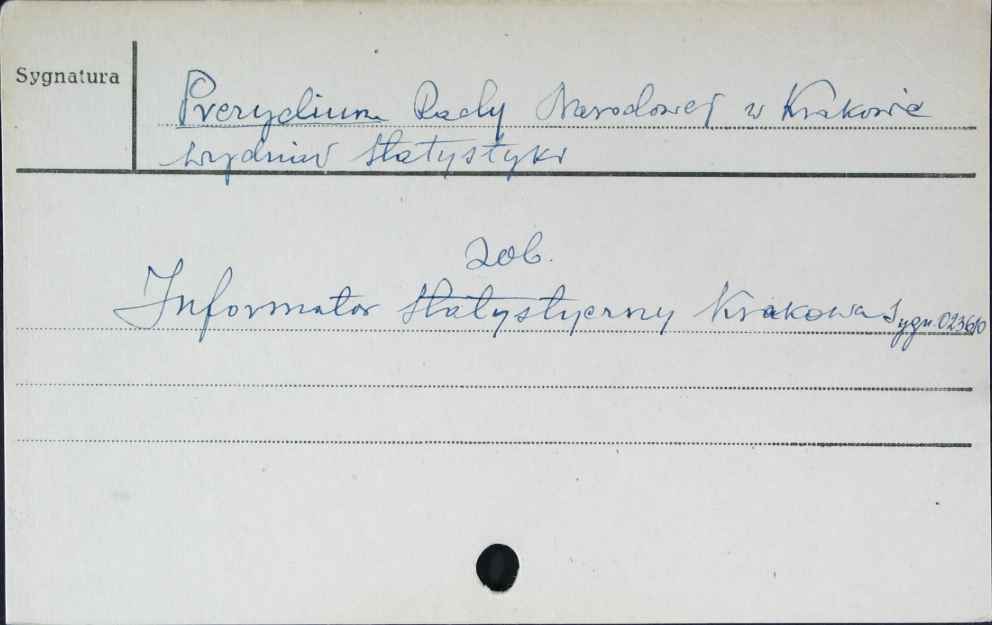 Sygnatura
Prezydium Rady Narodowej w Krakowie
Wydział Statystyki
zob.
Informator Statystyczny Krakowa Sygn. 023610